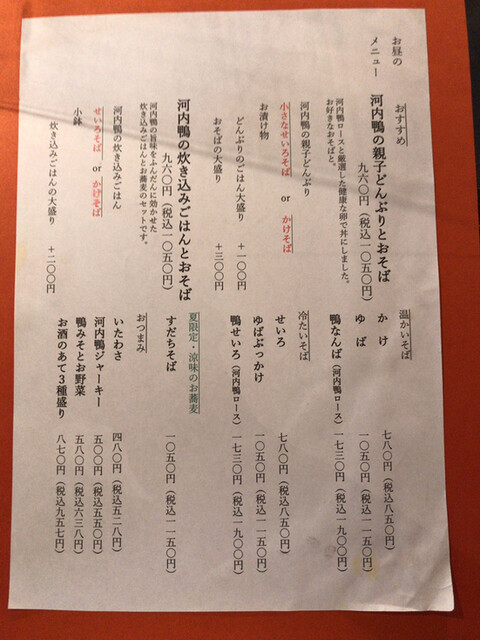 お昼の
メニュー
おすすめ
河内鴨の親子どんぶりとおそば
九六〇円（税込一〇五〇円）
河内鴨ロースと厳選した健康な卵で丼にしました。
お好きなおそばと。
河内鴨の親子どんぶり
小さなせいろそば or かけそば
お漬け物
どんぶりのごはん大盛り ＋一〇〇円
おそばの大盛り ＋三〇〇円
河内鴨の炊き込みごはんとおそば
九六〇円（税込一〇五〇円）
河内鴨の旨味をふんだんに効かせた
炊き込みごはんとお蕎麦のセットです。
河内鴨の炊き込みごはん
せいろそば or かけそば
小鉢
炊き込みごはんの大盛り ＋二〇〇円
温かいそば
かけ 七八〇円（税込八五〇円）
ゆば 一〇五〇円（税込一一五〇円）
鴨なんば（河内鴨ロース） 一七三〇円（税込一九〇〇円）
冷たいそば
せいろ 七八〇円（税込八五〇円）
ゆばぶっかけ 一〇五〇円（税込一一五〇円）
鴨せいろ（河内鴨ロース） 一七三〇円（税込一九〇〇円）
夏限定・涼味のお蕎麦
すだちそば 一〇五〇円（税込一一五〇円）
おつまみ
いたわさ 四八〇円（税込五二八円）
河内鴨ジャーキー 五〇〇円（税込五五〇円）
鴨みそとお野菜 五八〇円（税込六三八円）
お酒のあて３種盛り 八七〇円（税込九五七円）